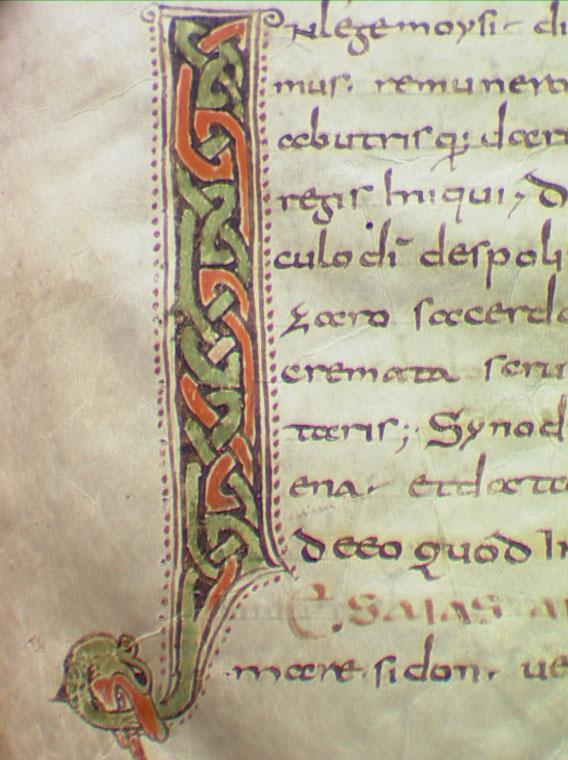 Nlege moysi di
mus. remunera
abutrisq; dcer
regis Iniqui,
culo dī despoli
zaro sacerdo
cremata scru
taris; Synod
ena. etdocto
deeo quod In
ESAIAS
mare sidon. ue